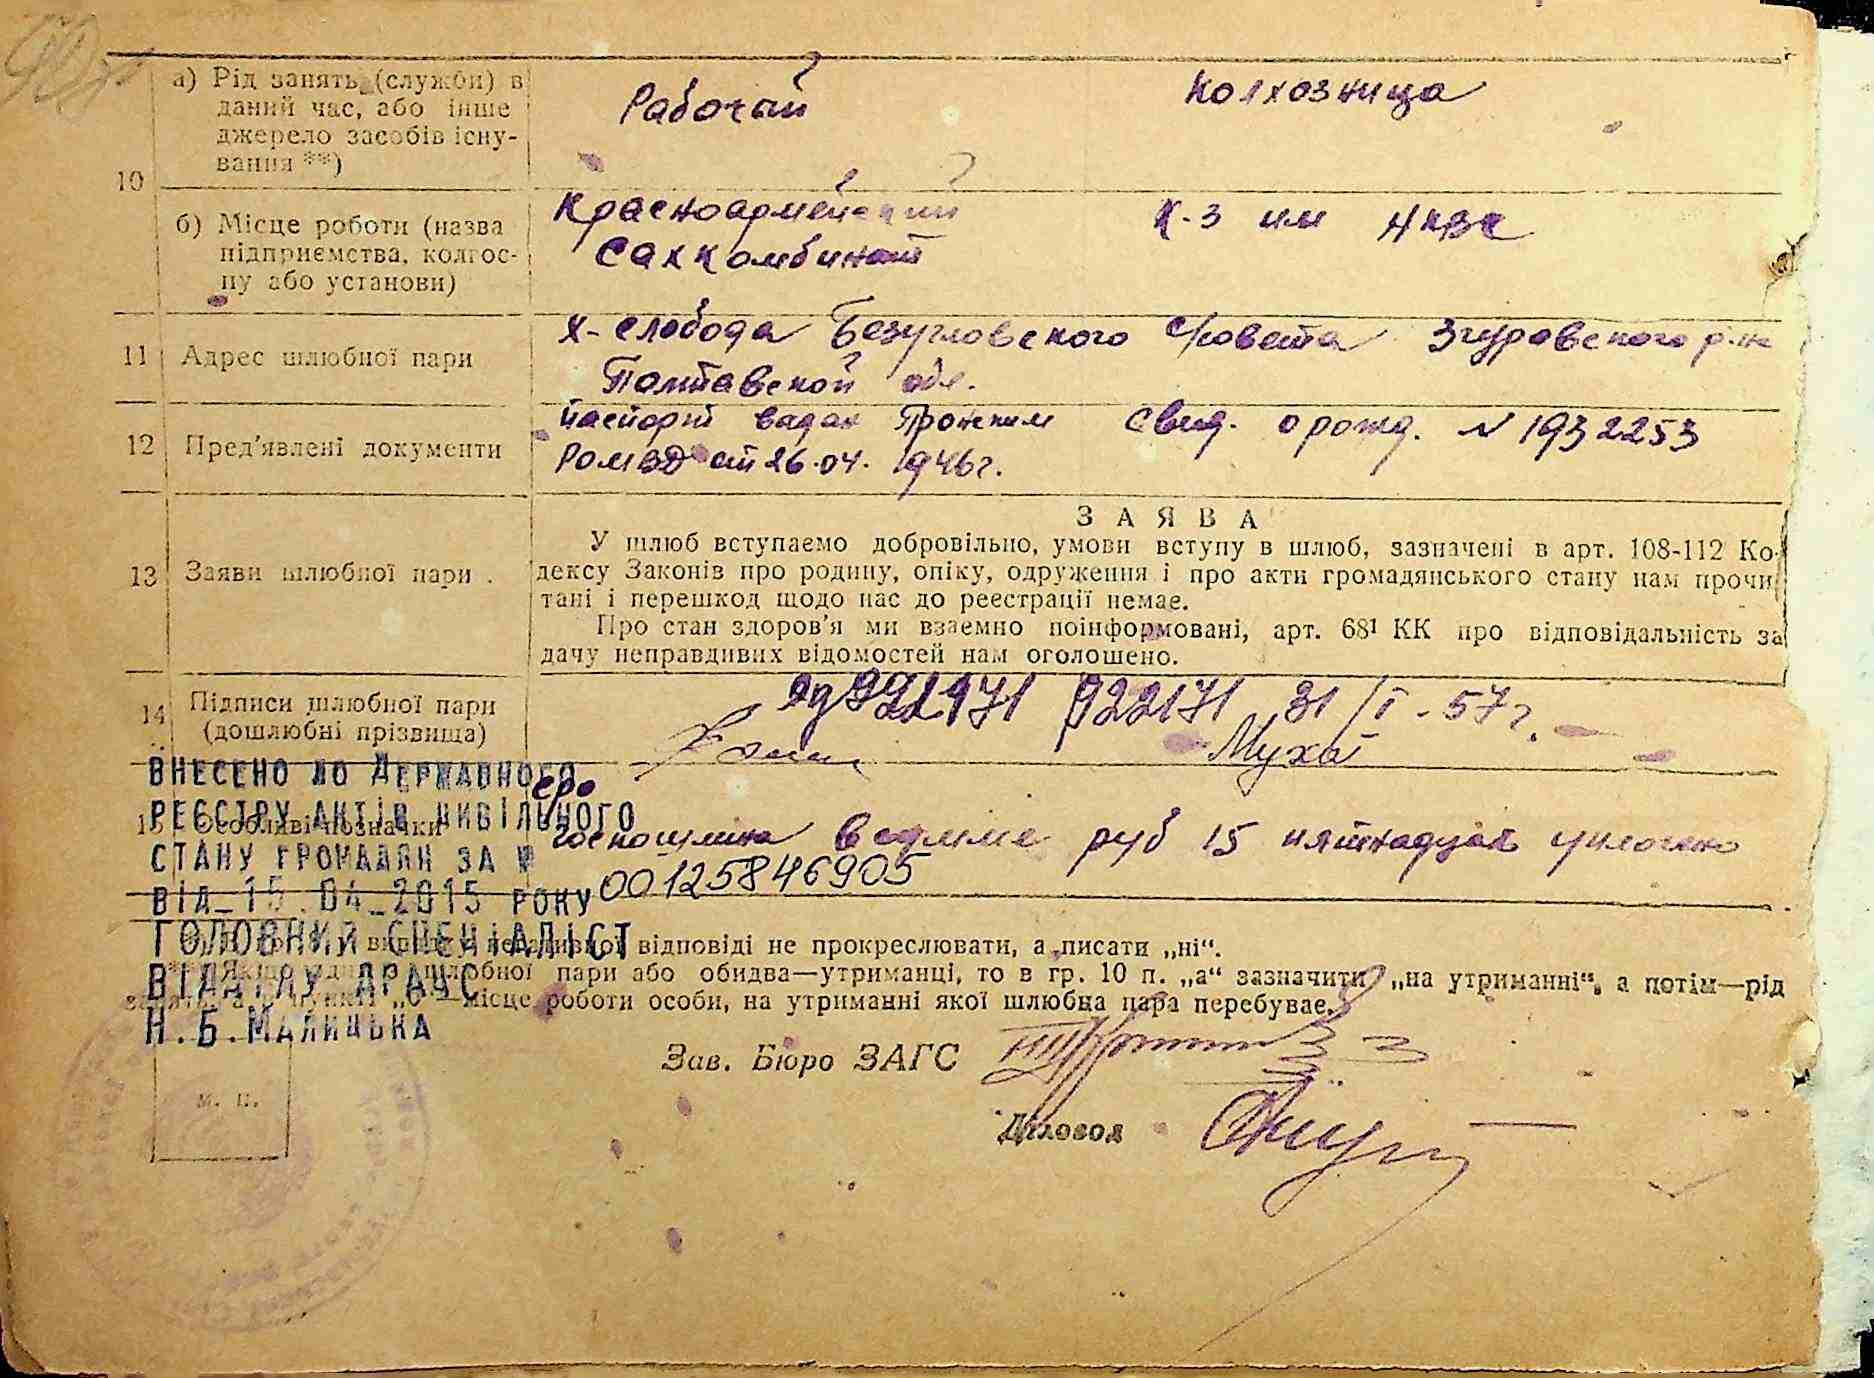 а) Рід занять (служби) в
даний час, або інше
джерело засобів існу-
вання **)
Рабочий
Колхозница
10
б) Місце роботи (назва
підприємства, колгос-
пу або установи)
Красноармейский
Сахкомбинат
К-з им НКВС
11
Адрес шлюбної пари
Х-слобода Безугловского с/совета Згуровского р-на
Полтавской обл.
12
Пред'явлені документи
паспорт вадан Пронским
РОМВД от 26.04. 1946г.
Свид. о рожд. N 1932253
13
Заяви шлюбної пари .
ЗАЯВА
У шлюб вступаємо добровільно, умови вступу в шлюб, зазначені в арт. 108-112 Ко-
дексу Законів про родину, опіку, одруження і про акти громадянського стану нам прочи
тані і перешкод щодо нас до реєстрації немає.
Про стан здоров'я ми взаємно поінформовані, арт. 68¹ КК про відповідальність за
дачу неправдивих відомостей нам оголошено.
14
Підписи шлюбної пари
(дошлюбні прізвища)
922171 31/I-57г.
Муха
15 Особливі позначки
госпошлина в сумме руб 15 пятнадцать уплочено
00125846905
ВНЕСЕНО ДО ДЕРЖАВНОГО
РЕЄСТРУ АКТІВ ЦИВІЛЬНОГО
СТАНУ ГРОМАДЯН ЗА №
ВІД 15.04.2015 РОКУ
ГОЛОВНИЙ СПЕЦІАЛІСТ
ВІДДІЛУ ДРАЦС
Н.Б.МАЛИЦЬКА
відповіді не прокреслювати, а писати „ні“.
шлюбної пари або обидва—утриманці, то в гр. 10 п. „а“ зазначити „на утриманні“, а потім—рід
місце роботи особи, на утриманні якої шлюбна пара перебуває.
Зав. Бюро ЗАГС
м. п.
Діловод